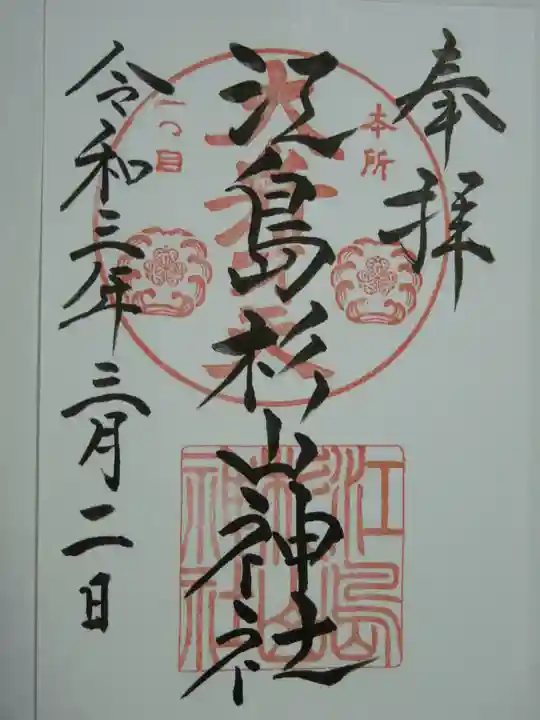 奉拝
本所
一つ目
江島杉山神社
江島
杉山
神社
令和三年三月二日